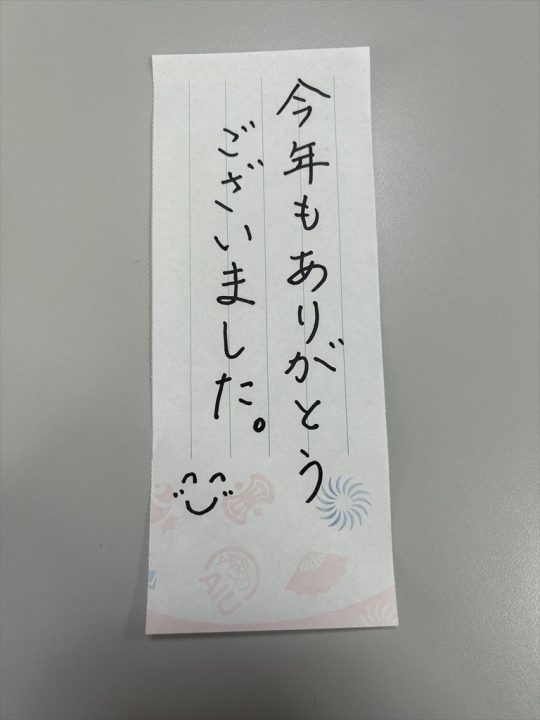 今年もありがとう
ございました。